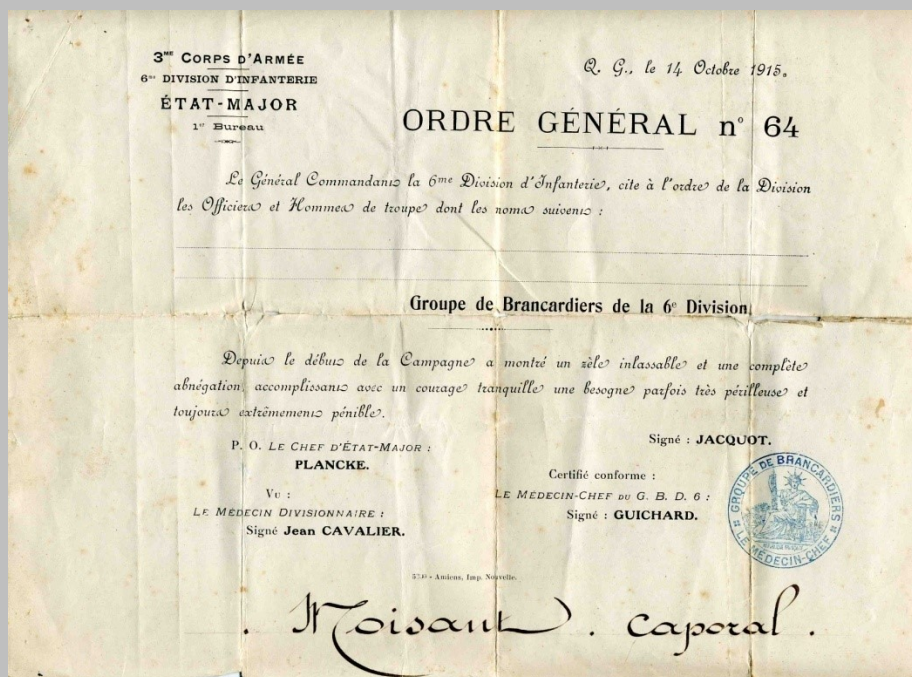 3ME CORPS D'ARMÉE
6me DIVISION D'INFANTERIE
ÉTAT-MAJOR
1er Bureau
Q. G., le 14 Octobre 1915.
ORDRE GÉNÉRAL n° 64
Le Général Commandant la 6me Division d'Infanterie, cite à l'ordre de la Division
les Officiers et Hommes de troupe dont les noms suivent :
Groupe de Brancardiers de la 6e Division
Depuis le début de la Campagne a montré un zèle inlassable et une complète
abnégation, accomplissant avec un courage tranquille une besogne parfois très périlleuse et
toujours extrêmement pénible.
P. O. LE CHEF D'ÉTAT-MAJOR :
PLANCKE.
Vu :
LE MÉDECIN DIVISIONNAIRE :
Signé Jean CAVALIER.
Signé : JACQUOT.
Certifié conforme :
LE MÉDECIN-CHEF DU G. B. D. 6 :
Signé : GUICHARD.
GROUPE DE BRANCARDIERS
LE MÉDECIN-CHEF
Amiens, Imp. Nouvelle.
Moisant. Caporal.